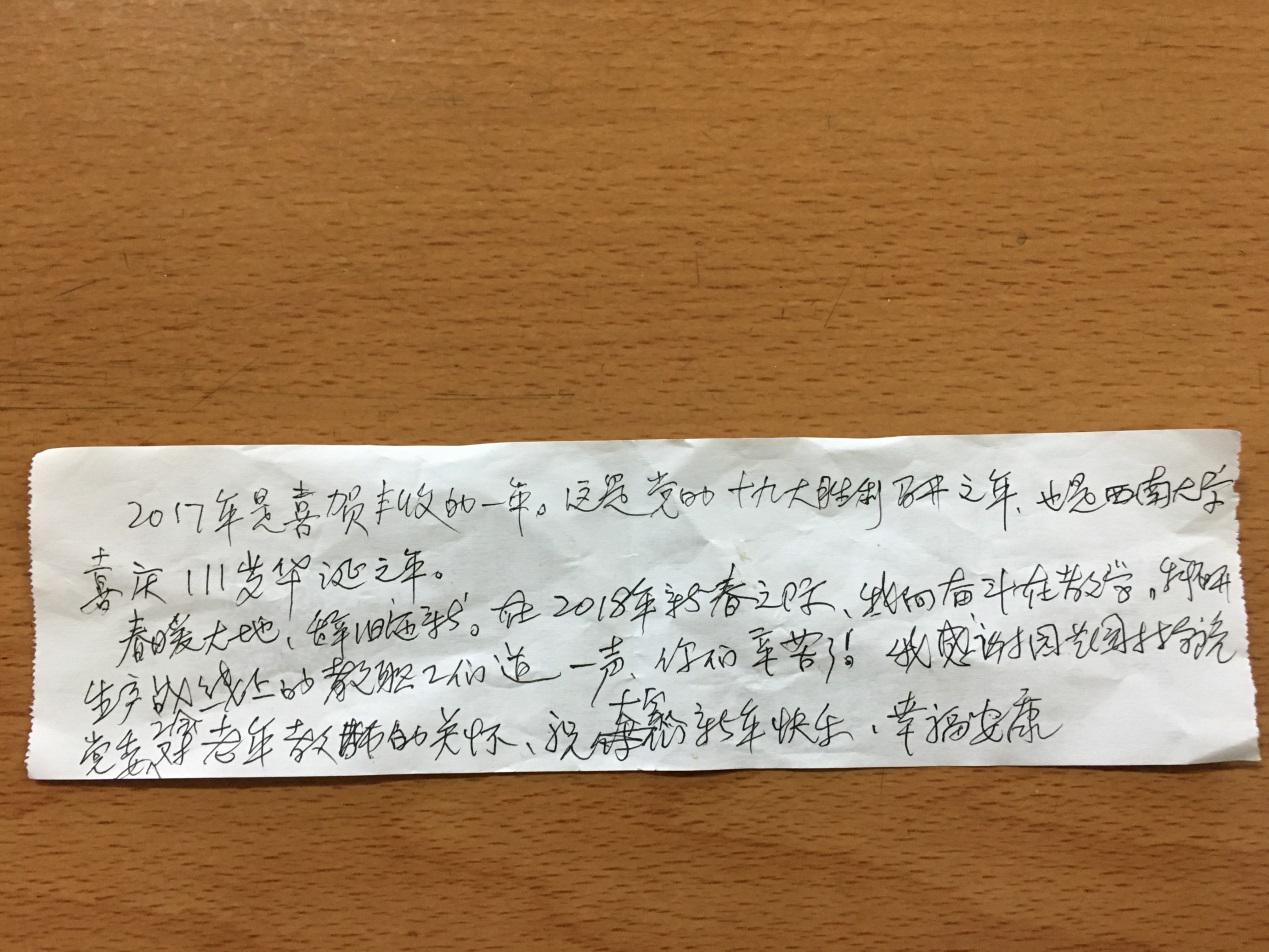 2017年是喜贺丰收的一年。这是党的十九大胜利召开之年、也是西南大学
喜庆111岁华诞之年。
春暖大地、辞旧迎新。在2018年新春之际、我向奋斗在教学,科研
生产战线上的教职工们道一声、你们辛苦了! 我感谢园艺园林学院
党委 老年教师的关怀、祝大家新年快乐、幸福安康